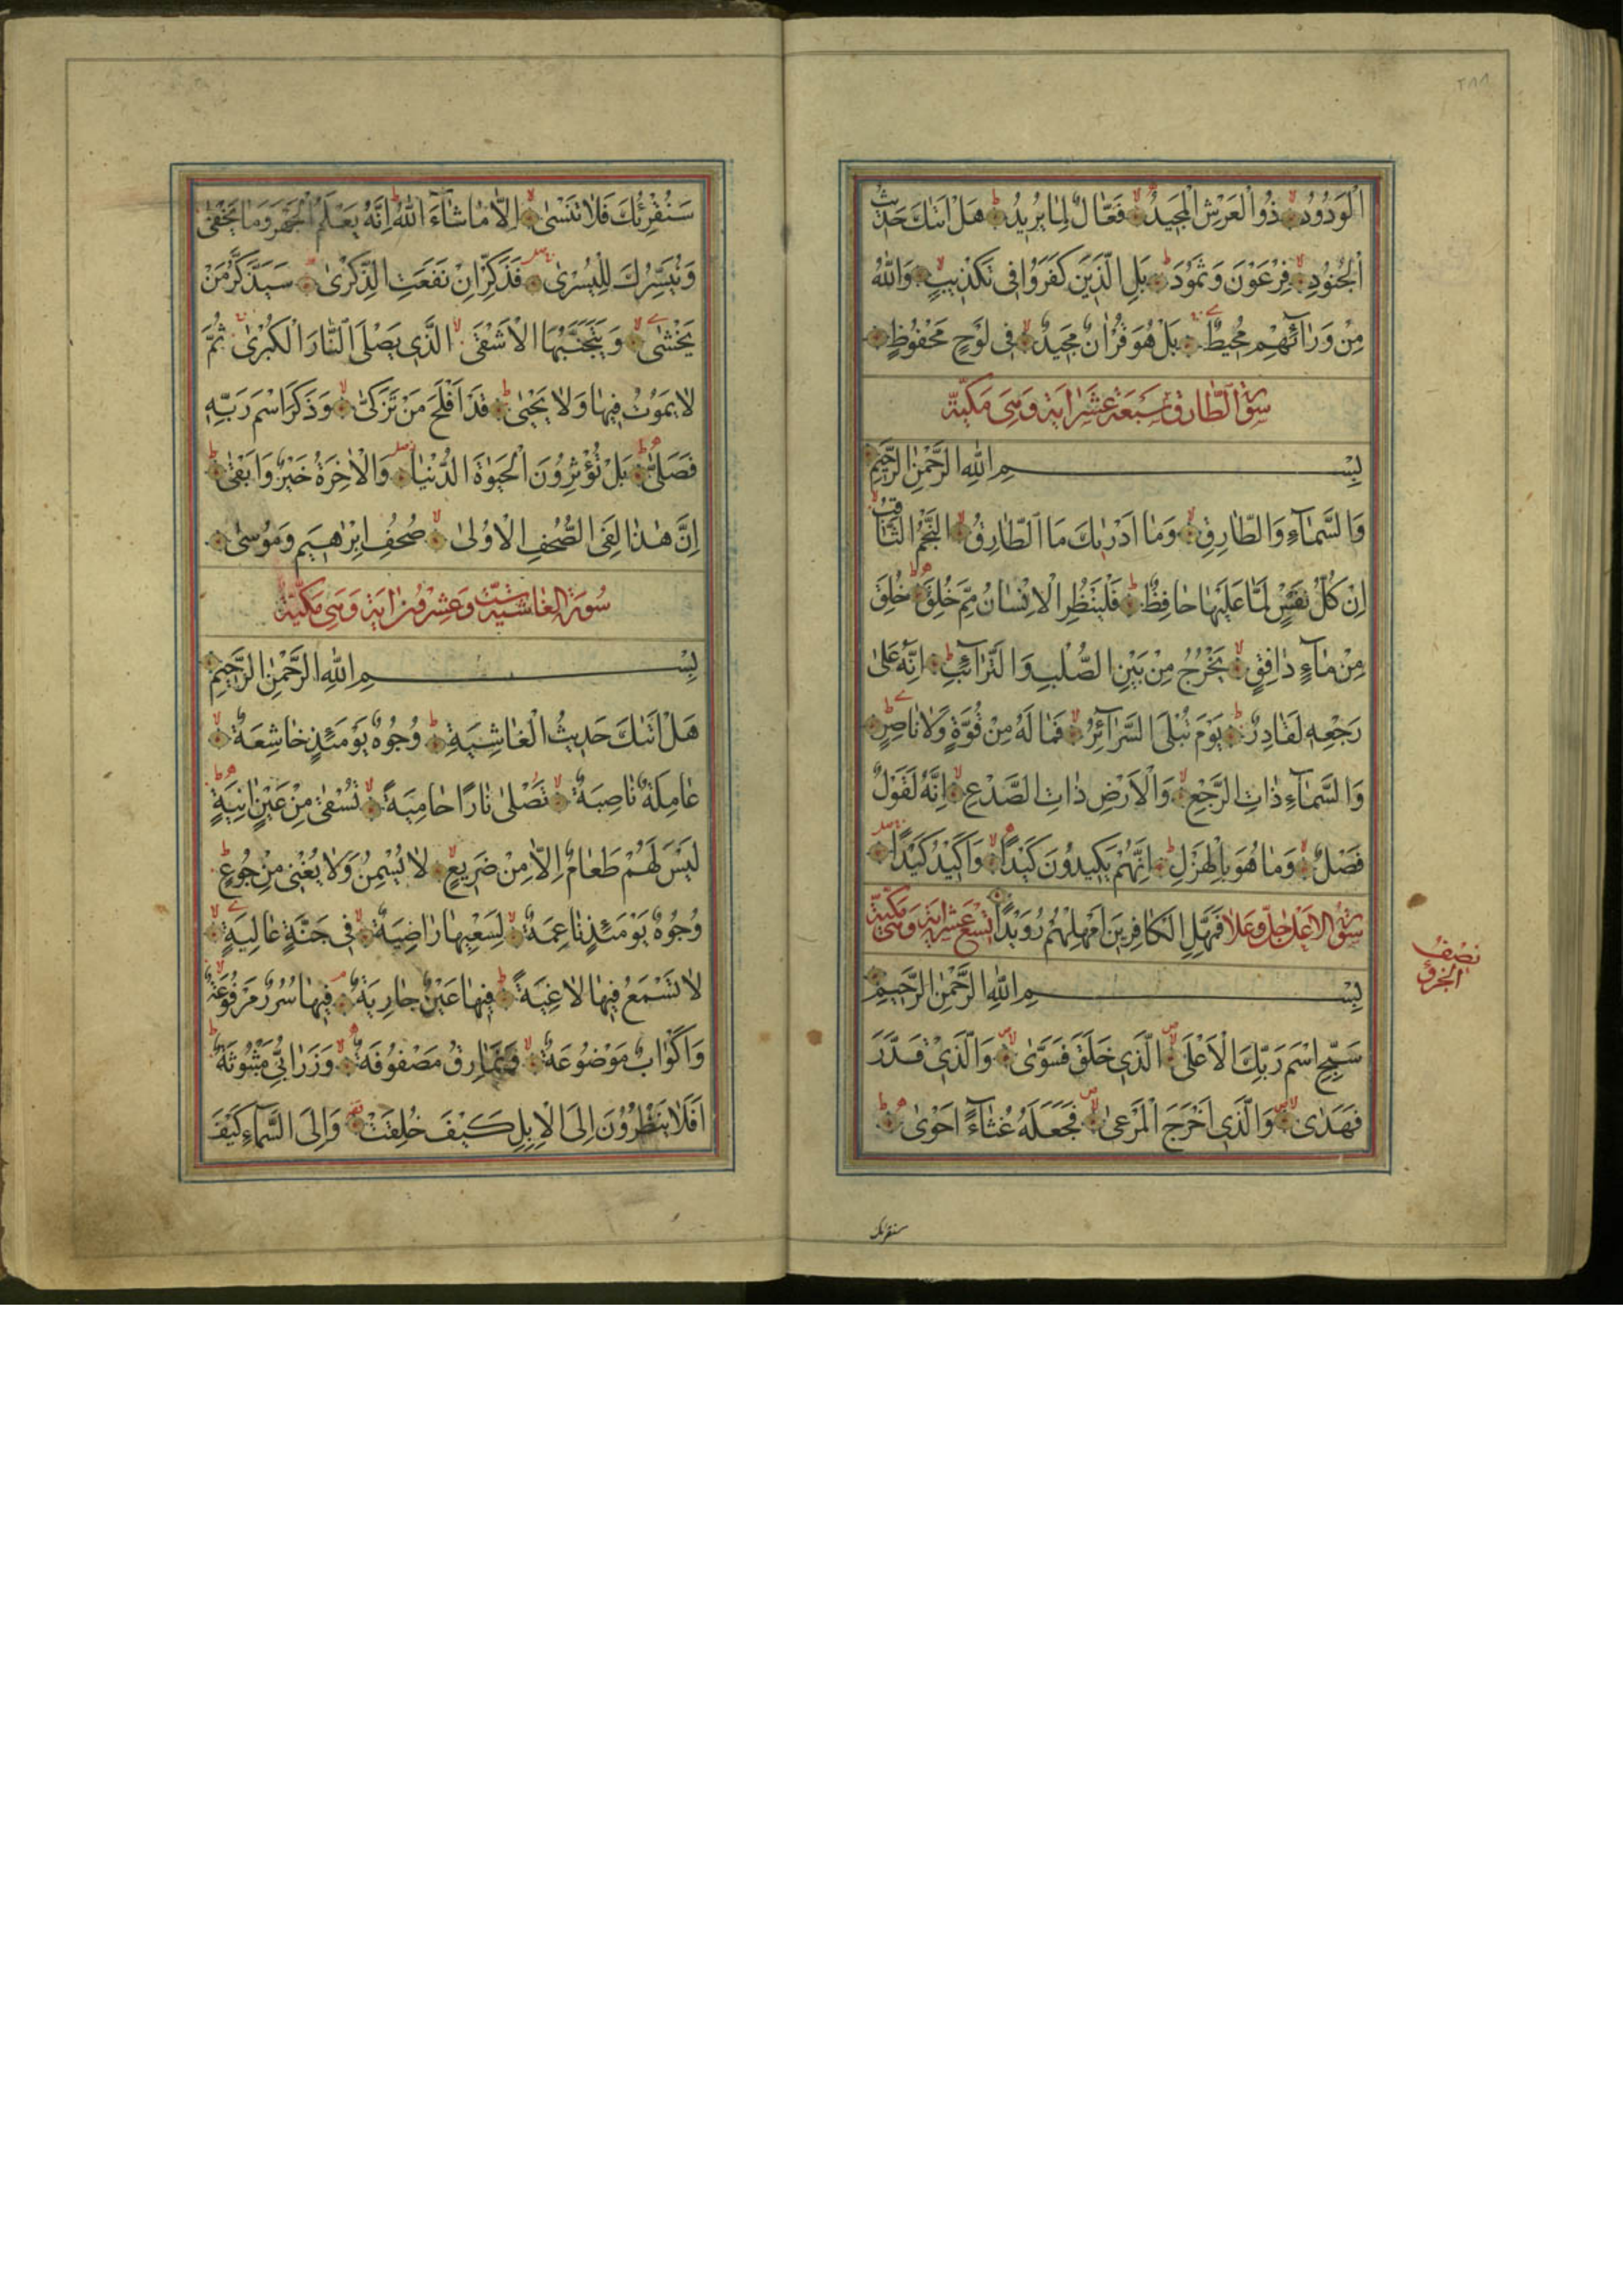 ٢٨٨
الْوَدُودُ ذُو الْعَرْشِ الْمَجِيدُ فَعَّالٌ لِمَا يُرِيدُ هَلْ اَتٰىكَ حَدِيثُ
الْجُنُودِ فِرْعَوْنَ وَثَمُودَ بَلِ الَّذِينَ كَفَرُوا فِى تَكْذِيبٍ وَاللّٰهُ
مِنْ وَرَآئِهِمْ مُحِيطٌ بَلْ هُوَ قُرْاٰنٌ مَجِيدٌ فِى لَوْحٍ مَحْفُوظٍ
سورة الطارق سبعة عشر اية وهى مكية
بِسْمِ اللّٰهِ الرَّحْمٰنِ الرَّحِيمِ
وَالسَّمَآءِ وَالطَّارِقِ وَمَا اَدْرٰىكَ مَا الطَّارِقُ النَّجْمُ الثَّاقِبُ
اِنْ كُلُّ نَفْسٍ لَمَّا عَلَيْهَا حَافِظٌ فَلْيَنْظُرِ الْاِنْسَانُ مِمَّ خُلِقَ خُلِقَ
مِنْ مَآءٍ دَافِقٍ يَخْرُجُ مِنْ بَيْنِ الصُّلْبِ وَالتَّرَآئِبِ اِنَّهُ عَلٰى
رَجْعِهِ لَقَادِرٌ يَوْمَ تُبْلَى السَّرَآئِرُ فَمَا لَهُ مِنْ قُوَّةٍ وَلَا نَاصِرٍ
وَالسَّمَآءِ ذَاتِ الرَّجْعِ وَالْاَرْضِ ذَاتِ الصَّدْعِ اِنَّهُ لَقَوْلٌ
فَصْلٌ وَمَا هُوَ بِالْهَزْلِ اِنَّهُمْ يَكِيدُونَ كَيْدًا وَاَكِيدُ كَيْدًا
سورة الاعلى جل وعلا فَمَهِّلِ الْكَافِرِينَ اَمْهِلْهُمْ رُوَيْدًا تسع عشر اية وهى مكية
بِسْمِ اللّٰهِ الرَّحْمٰنِ الرَّحِيمِ
سَبِّحِ اسْمَ رَبِّكَ الْاَعْلَى الَّذِى خَلَقَ فَسَوّٰى وَالَّذِى قَدَّرَ
فَهَدٰى وَالَّذِى اَخْرَجَ الْمَرْعٰى فَجَعَلَهُ غُثَآءً اَحْوٰى
سنقرئك
نصف
الجزؤ
سَنُقْرِئُكَ فَلَا تَنْسٰى اِلَّا مَا شَآءَ اللّٰهُ اِنَّهُ يَعْلَمُ الْجَهْرَ وَمَا يَخْفٰى
وَنُيَسِّرُكَ لِلْيُسْرٰى فَذَكِّرْ اِنْ نَفَعَتِ الذِّكْرٰى سَيَذَّكَّرُ مَنْ
يَخْشٰى وَيَتَجَنَّبُهَا الْاَشْقَى الَّذِى يَصْلَى النَّارَ الْكُبْرٰى ثُمَّ
لَا يَمُوتُ فِيهَا وَلَا يَحْيٰى قَدْ اَفْلَحَ مَنْ تَزَكّٰى وَذَكَرَ اسْمَ رَبِّهِ
فَصَلّٰى بَلْ تُؤْثِرُونَ الْحَيٰوةَ الدُّنْيَا وَالْاٰخِرَةُ خَيْرٌ وَاَبْقٰى
اِنَّ هٰذَا لَفِى الصُّحُفِ الْاُولٰى صُحُفِ اِبْرٰهِيمَ وَمُوسٰى
سورة الغاشية ست وعشرون اية وهى مكية
بِسْمِ اللّٰهِ الرَّحْمٰنِ الرَّحِيمِ
هَلْ اَتٰىكَ حَدِيثُ الْغَاشِيَةِ وُجُوهٌ يَوْمَئِذٍ خَاشِعَةٌ
عَامِلَةٌ نَاصِبَةٌ تَصْلٰى نَارًا حَامِيَةً تُسْقٰى مِنْ عَيْنٍ اٰنِيَةٍ
لَيْسَ لَهُمْ طَعَامٌ اِلَّا مِنْ ضَرِيعٍ لَا يُسْمِنُ وَلَا يُغْنِى مِنْ جُوعٍ
وُجُوهٌ يَوْمَئِذٍ نَاعِمَةٌ لِسَعْيِهَا رَاضِيَةٌ فِى جَنَّةٍ عَالِيَةٍ
لَا تَسْمَعُ فِيهَا لَاغِيَةً فِيهَا عَيْنٌ جَارِيَةٌ فِيهَا سُرُرٌ مَرْفُوعَةٌ
وَاَكْوَابٌ مَوْضُوعَةٌ وَنَمَارِقُ مَصْفُوفَةٌ وَزَرَابِىُّ مَبْثُوثَةٌ
اَفَلَا يَنْظُرُونَ اِلَى الْاِبِلِ كَيْفَ خُلِقَتْ وَاِلَى السَّمَآءِ كَيْفَ